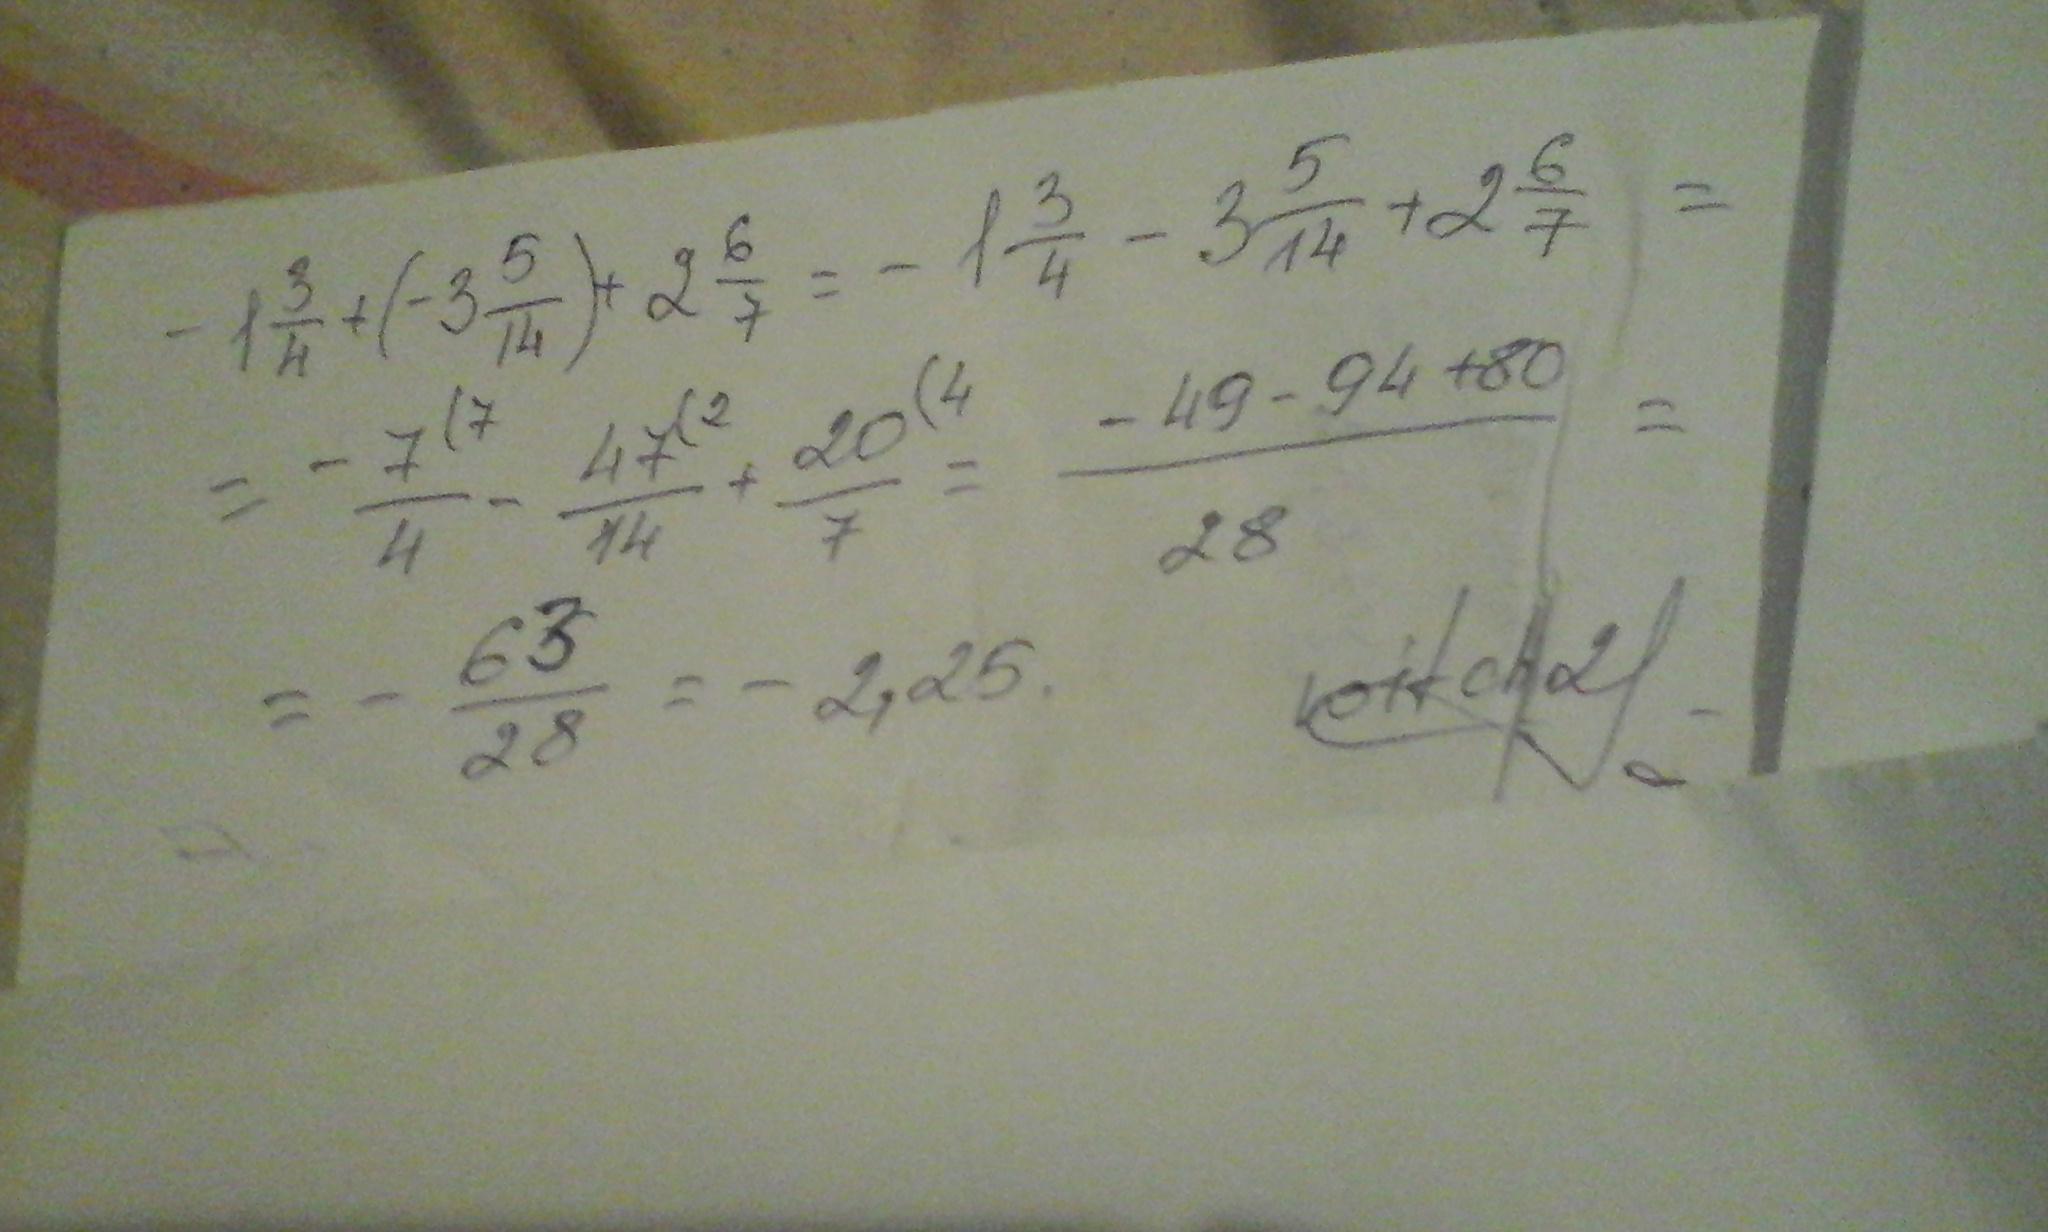 -1 3/4 + (-3 5/14) + 2 6/7 = -1 3/4 - 3 5/14 + 2 6/7 =
= -7(7/4 - 47(2/14 + 20(4/7 = -49-94+80/28 =
= -63/28 = -2,25.